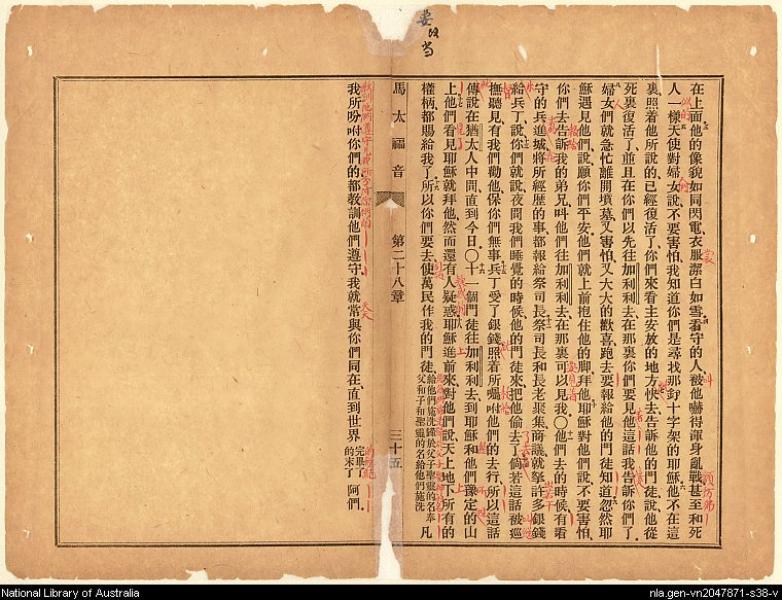 在上面他的像貌如同閃電衣服潔白如雪看守的人被他嚇得渾身亂戰甚至和死
人一樣天使對婦女說不要害怕我知道你們是尋找那釘十字架的耶穌他不在這
裏照着他所說的已經復活了你們來看主安放的地方快去告訴他的門徒說他從
死裏復活了並且在你們以先往加利利去在那裏你們要見他這話我告訴你們了
婦女們就急忙離開墳墓又害怕又大大的歡喜跑去要報給他的門徒知道忽然耶
穌遇見他們說願你們平安他們就上前抱住他的脚拜他耶穌對他們說不要害怕
你們去告訴我的弟兄叫他們往加利利去在那裏可以見我〇他們去的時候有看
守的兵進城將所經歷的事都報給祭司長祭司長和長老聚集商議就拏許多銀錢
給兵丁說你們就說夜間我們睡覺的時候他的門徒來把他偷去了倘若這話被巡
撫聽見有我們勸他保你們無事兵丁受了銀錢照着所囑咐他們的去行所以這話
傳說在猶太人中間直到今日〇十一個門徒往加利利去到耶穌和他們豫定的山
上他們看見耶穌就拜他然而還有人疑惑耶穌進前來對他們說天上地下所有的
權柄都賜給我了所以你們要去使萬民作我的門徒給他們施洗歸於父子聖靈的名奉父和子和聖靈的名給他們施洗凡
馬太福音 第二十八章 三十五
我所吩咐你們的都教訓他們遵守我就常與你們同在直到世界完畢了的末了阿們
National Library of Australia
nla.gen-vn2047871-s38-v